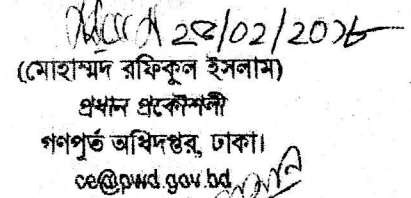 ২৫/০২/২০১৮
(মোহাম্মদ রফিকুল ইসলাম)
প্রধান প্রকৌশলী
গণপূর্ত অধিদপ্তর, ঢাকা।
ce@pwd.gov.bd